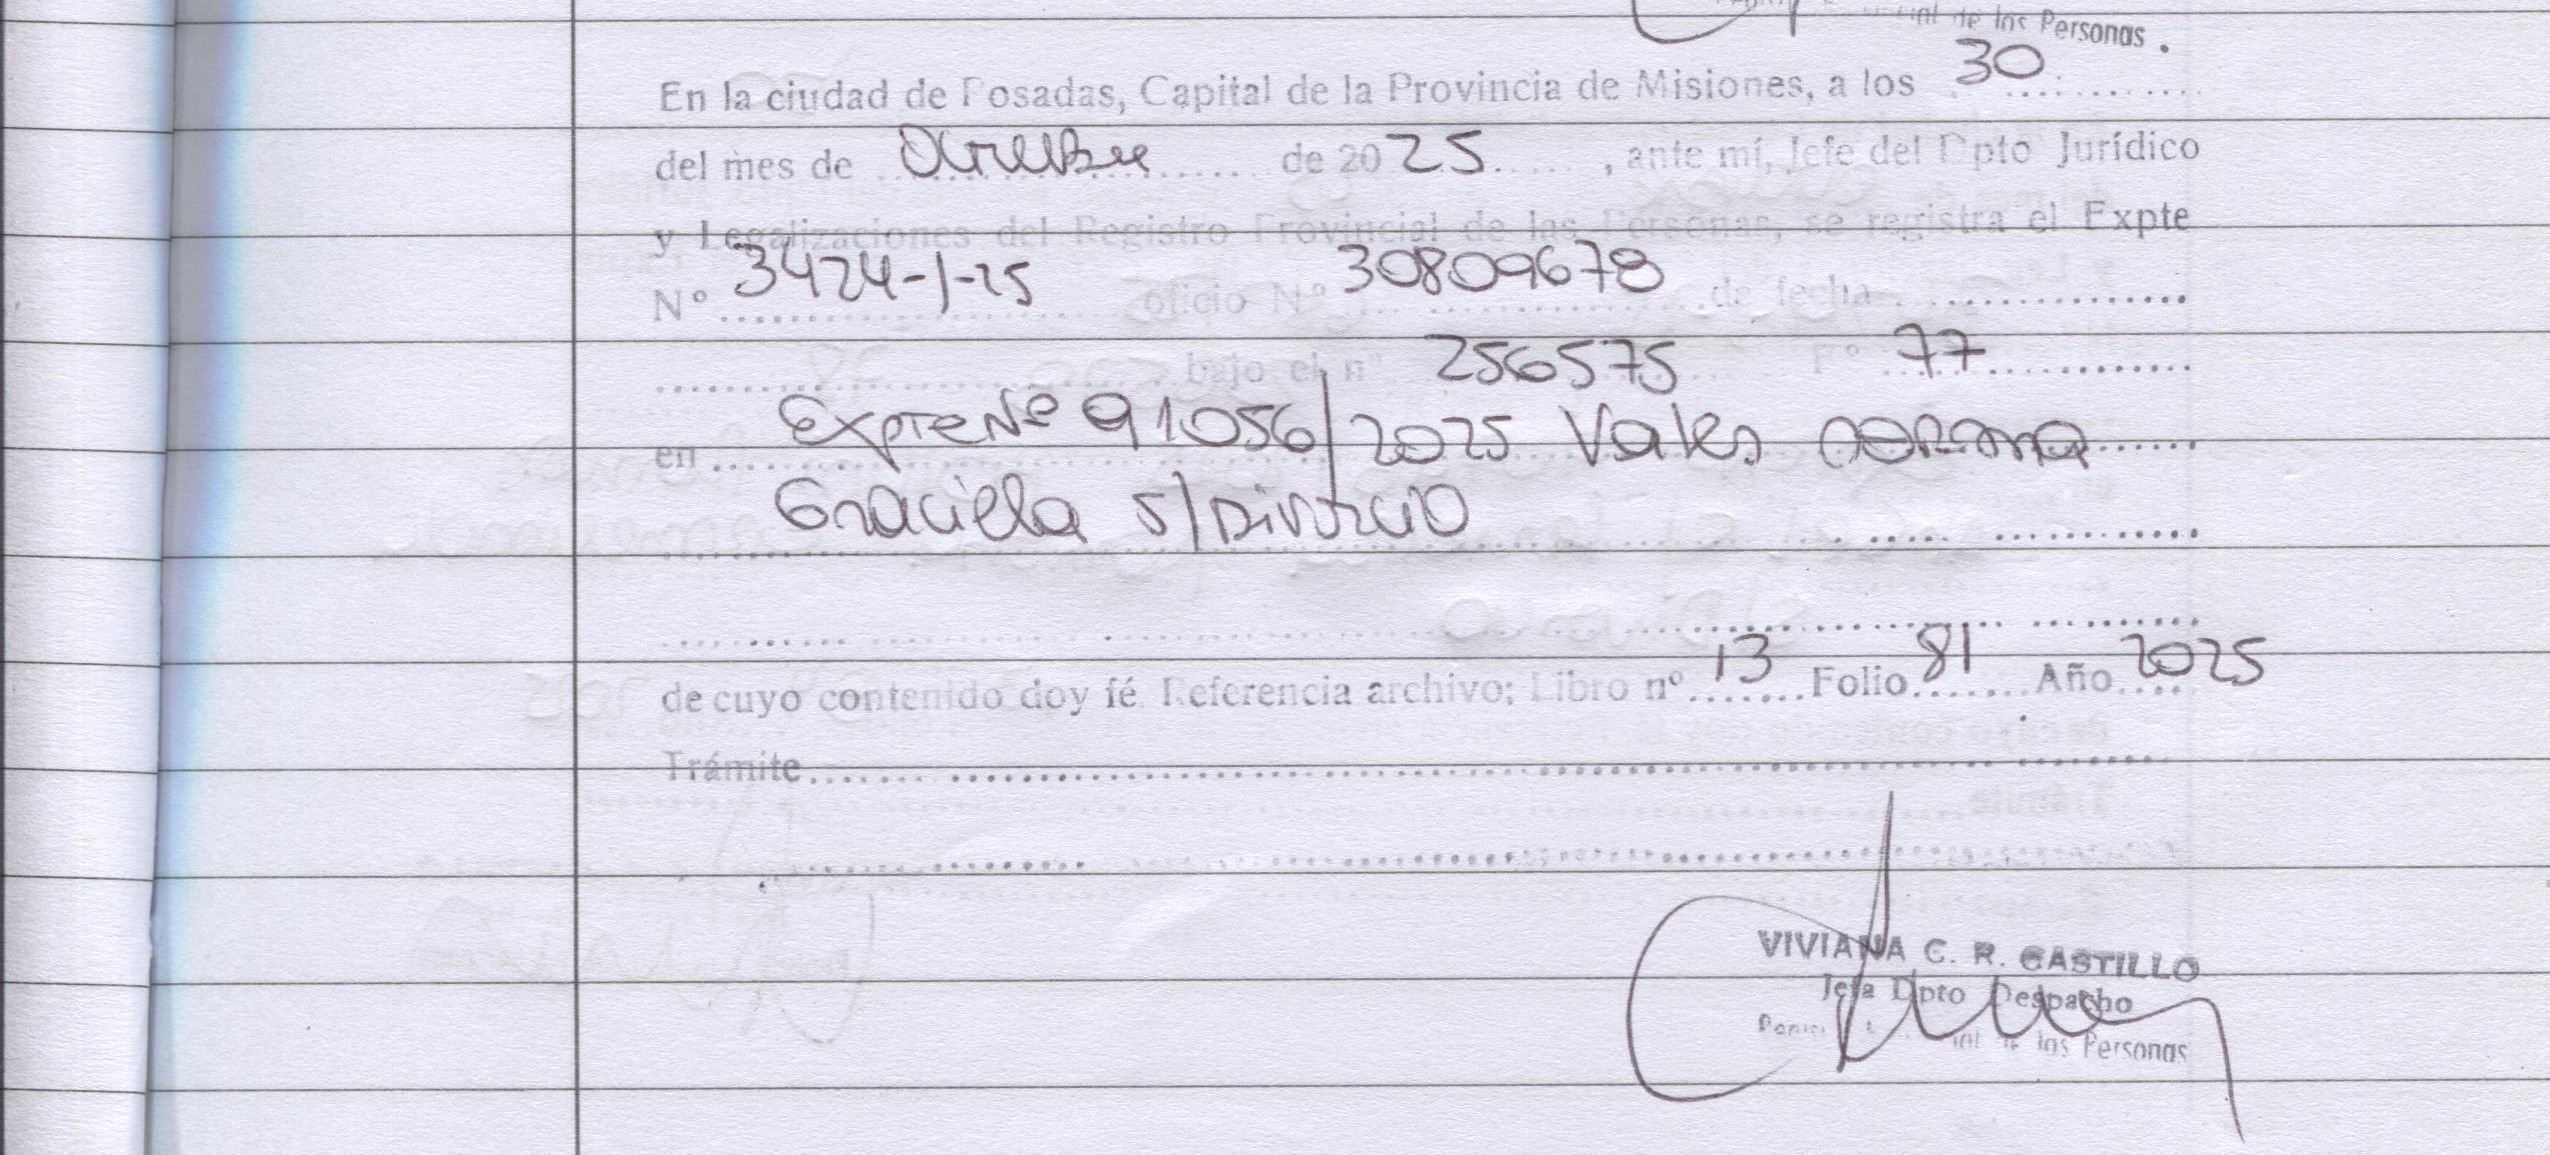 de las Personas.
En la ciudad de Posadas, Capital de la Provincia de Misiones, a los 30
del mes de Octubre de 2025, ante mí, Jefe del Dpto Jurídico
y Legalizaciones del Registro Provincial de las Personas, se registra el Expte
Nº 3424-1-25 oficio Nº 30809678 de fecha
bajo el nº 256575 Fº 77
en Expte Nº 91056/2025 Vales
Graciela S/Divorcio
de cuyo contenido doy fé Referencia archivo; Libro nº 13 Folio 81 Año 2025
Trámite
VIVIANA C. R. CASTILLO
Jefa Dpto Despacho
de las Personas